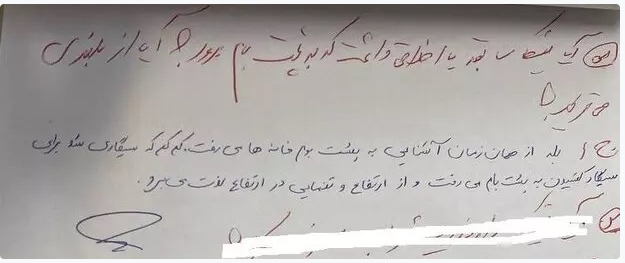 س) آیا نیکا سابقه یا اخلاقی داشت که به پشت بام برود؟ آیا از بلندی
می ترسید؟
ج) بله از همان زمان آشنایی به پشت بوم خانه ها می رفت. کم کم که سیگاری شد برای
سیگار کشیدن به پشت بام می رفت و از ارتفاع و تنهایی در ارتفاع لذت می برد.
س)